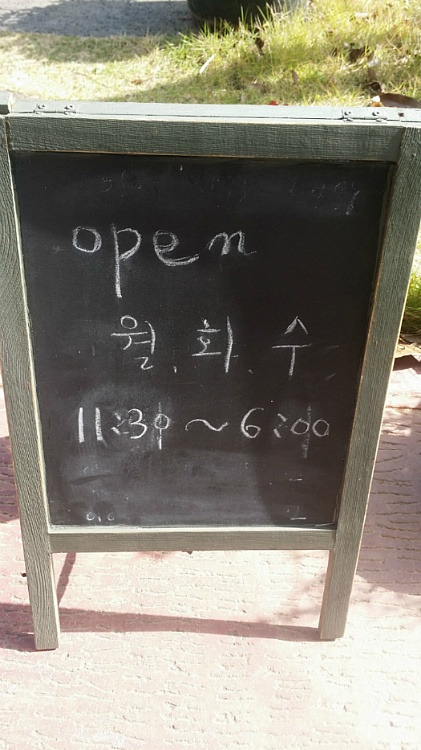 open
월. 화. 수
11:30 ~ 6:00